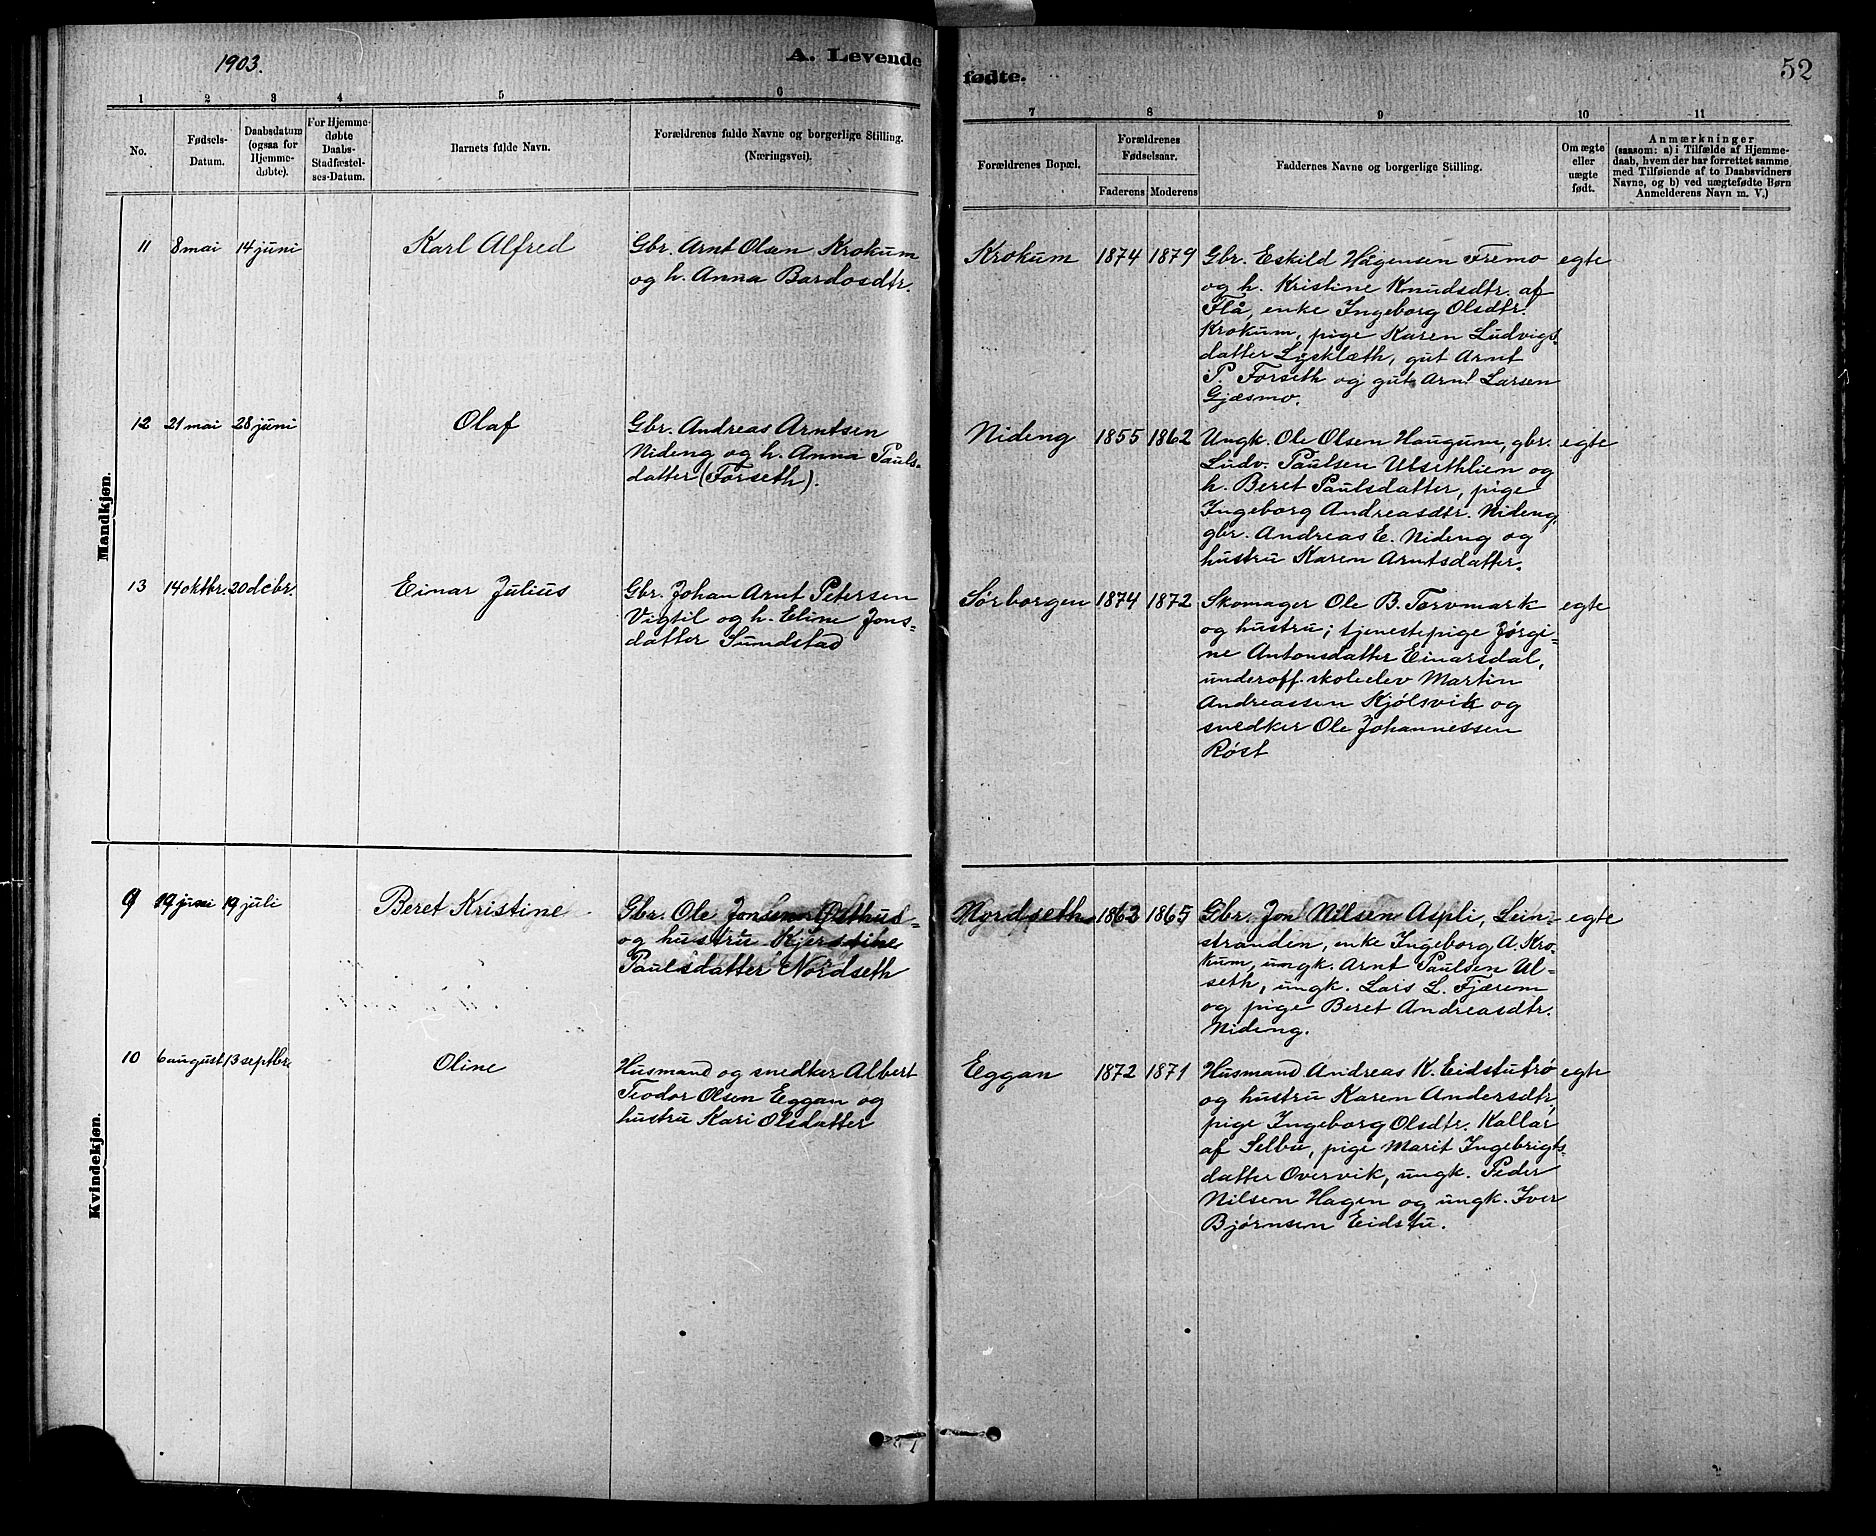 1903.
A. Levende
fødte.
52
1 2 3 4 5 6 7 8 9 10 11
No.
Fødsels-
Datum.
Daabsdatum
(ogsaa for
Hjemme-
døbte).
For Hjemme-
døbte
Daabs-
Stadfæstel-
ses-Datum.
Barnets fulde Navn.
Forældrenes fulde Navne og borgerlige Stilling.
(Næringsvei).
Forældrenes Bopæl.
Forældrenes
Fødselsaar.
Faderens Moderens
Faddernes Navne og borgerlige Stilling.
Om ægte
eller
uægte
født.
Anmærkninger
(saasom: a) i Tilfælde af Hjemme-
daab, hvem der har forrettet samme,
med Tilføiende af to Daabsvidners
Navne, og b) ved uægtefødte Børn
Anmelderens Navn m. V.)
Mandkjøn.
11 8 mai 14 juni Karl Alfred
Gbr. Arnt Olsen Krokum
og h. Anna Bardosdtr.
Krokum 1874 1879
Gbr. Eskild Hågensen Fremo
og h. Kristine Knudsdtr. af
Flå, enke Ingeborg Olsdtr.
Krokum, pige Karen Ludvigs-
datter Lysklæth, gut Arnt
P. Forseth og gut Arnt Larsen
Gjæsmo.
egte
12 21 mai 28 juni Olaf
Gbr. Andreas Arntsen
Nideng og h. Anna Pauls-
datter (Forseth).
Nideng 1855 1862
Ungk. Ole Olsen Haugum, gbr.
Ludv. Paulsen Ulsethlien og
h. Beret Paulsdatter, pige
Ingeborg Andreasdtr. Nideng,
gbr. Andreas E. Nideng og
hustru Karen Arntsdatter.
egte
13 14 oktbr. 20 dcbr. Einar Julius
Gbr. Johan Arnt Petersen
Vigtil og h. Eline Jons-
datter Sundstad
Sørborgen 1874 1872
Skomager Ole B. Torvmark
og hustru; tjenestepige Jørgi-
ne Antonsdatter Einarsdal,
underoff. skoleelev Martin
Andreassen Kjølsvik og
snedker Ole Johannessen
Røst
egte
Kvindekjøn.
9 19 juni 19 juli Beret Kristine
Gbr. Ole Jonsen
og hustru Kjerstine
Paulsdatter Nordseth
Nordseth 1863 1865
Gbr. Jon Nilsen Aspli, Lein-
stranden, enke Ingeborg A. Kro-
kum, ungk. Arnt Paulsen Ul-
seth, ungk. Lars L. Fjærem
og pige Beret Andreasdtr.
Nideng.
egte
10 6 august 13 septbr Oline
Husmand og snedker Albert
Teodor Olsen Eggan og
hustru Kari Olsdatter
Eggan 1872 1871
Husmand Andreas K. Eidstutrø
og hustru Karen Andersdtr,
pige Ingeborg Olsdtr. Kallar
af Selbu, pige Marit Ingebrigts-
datter Overvik, ungk. Peder
Nilsen Hagen og ungk. Iver
Bjørnsen Eidstu.
egte